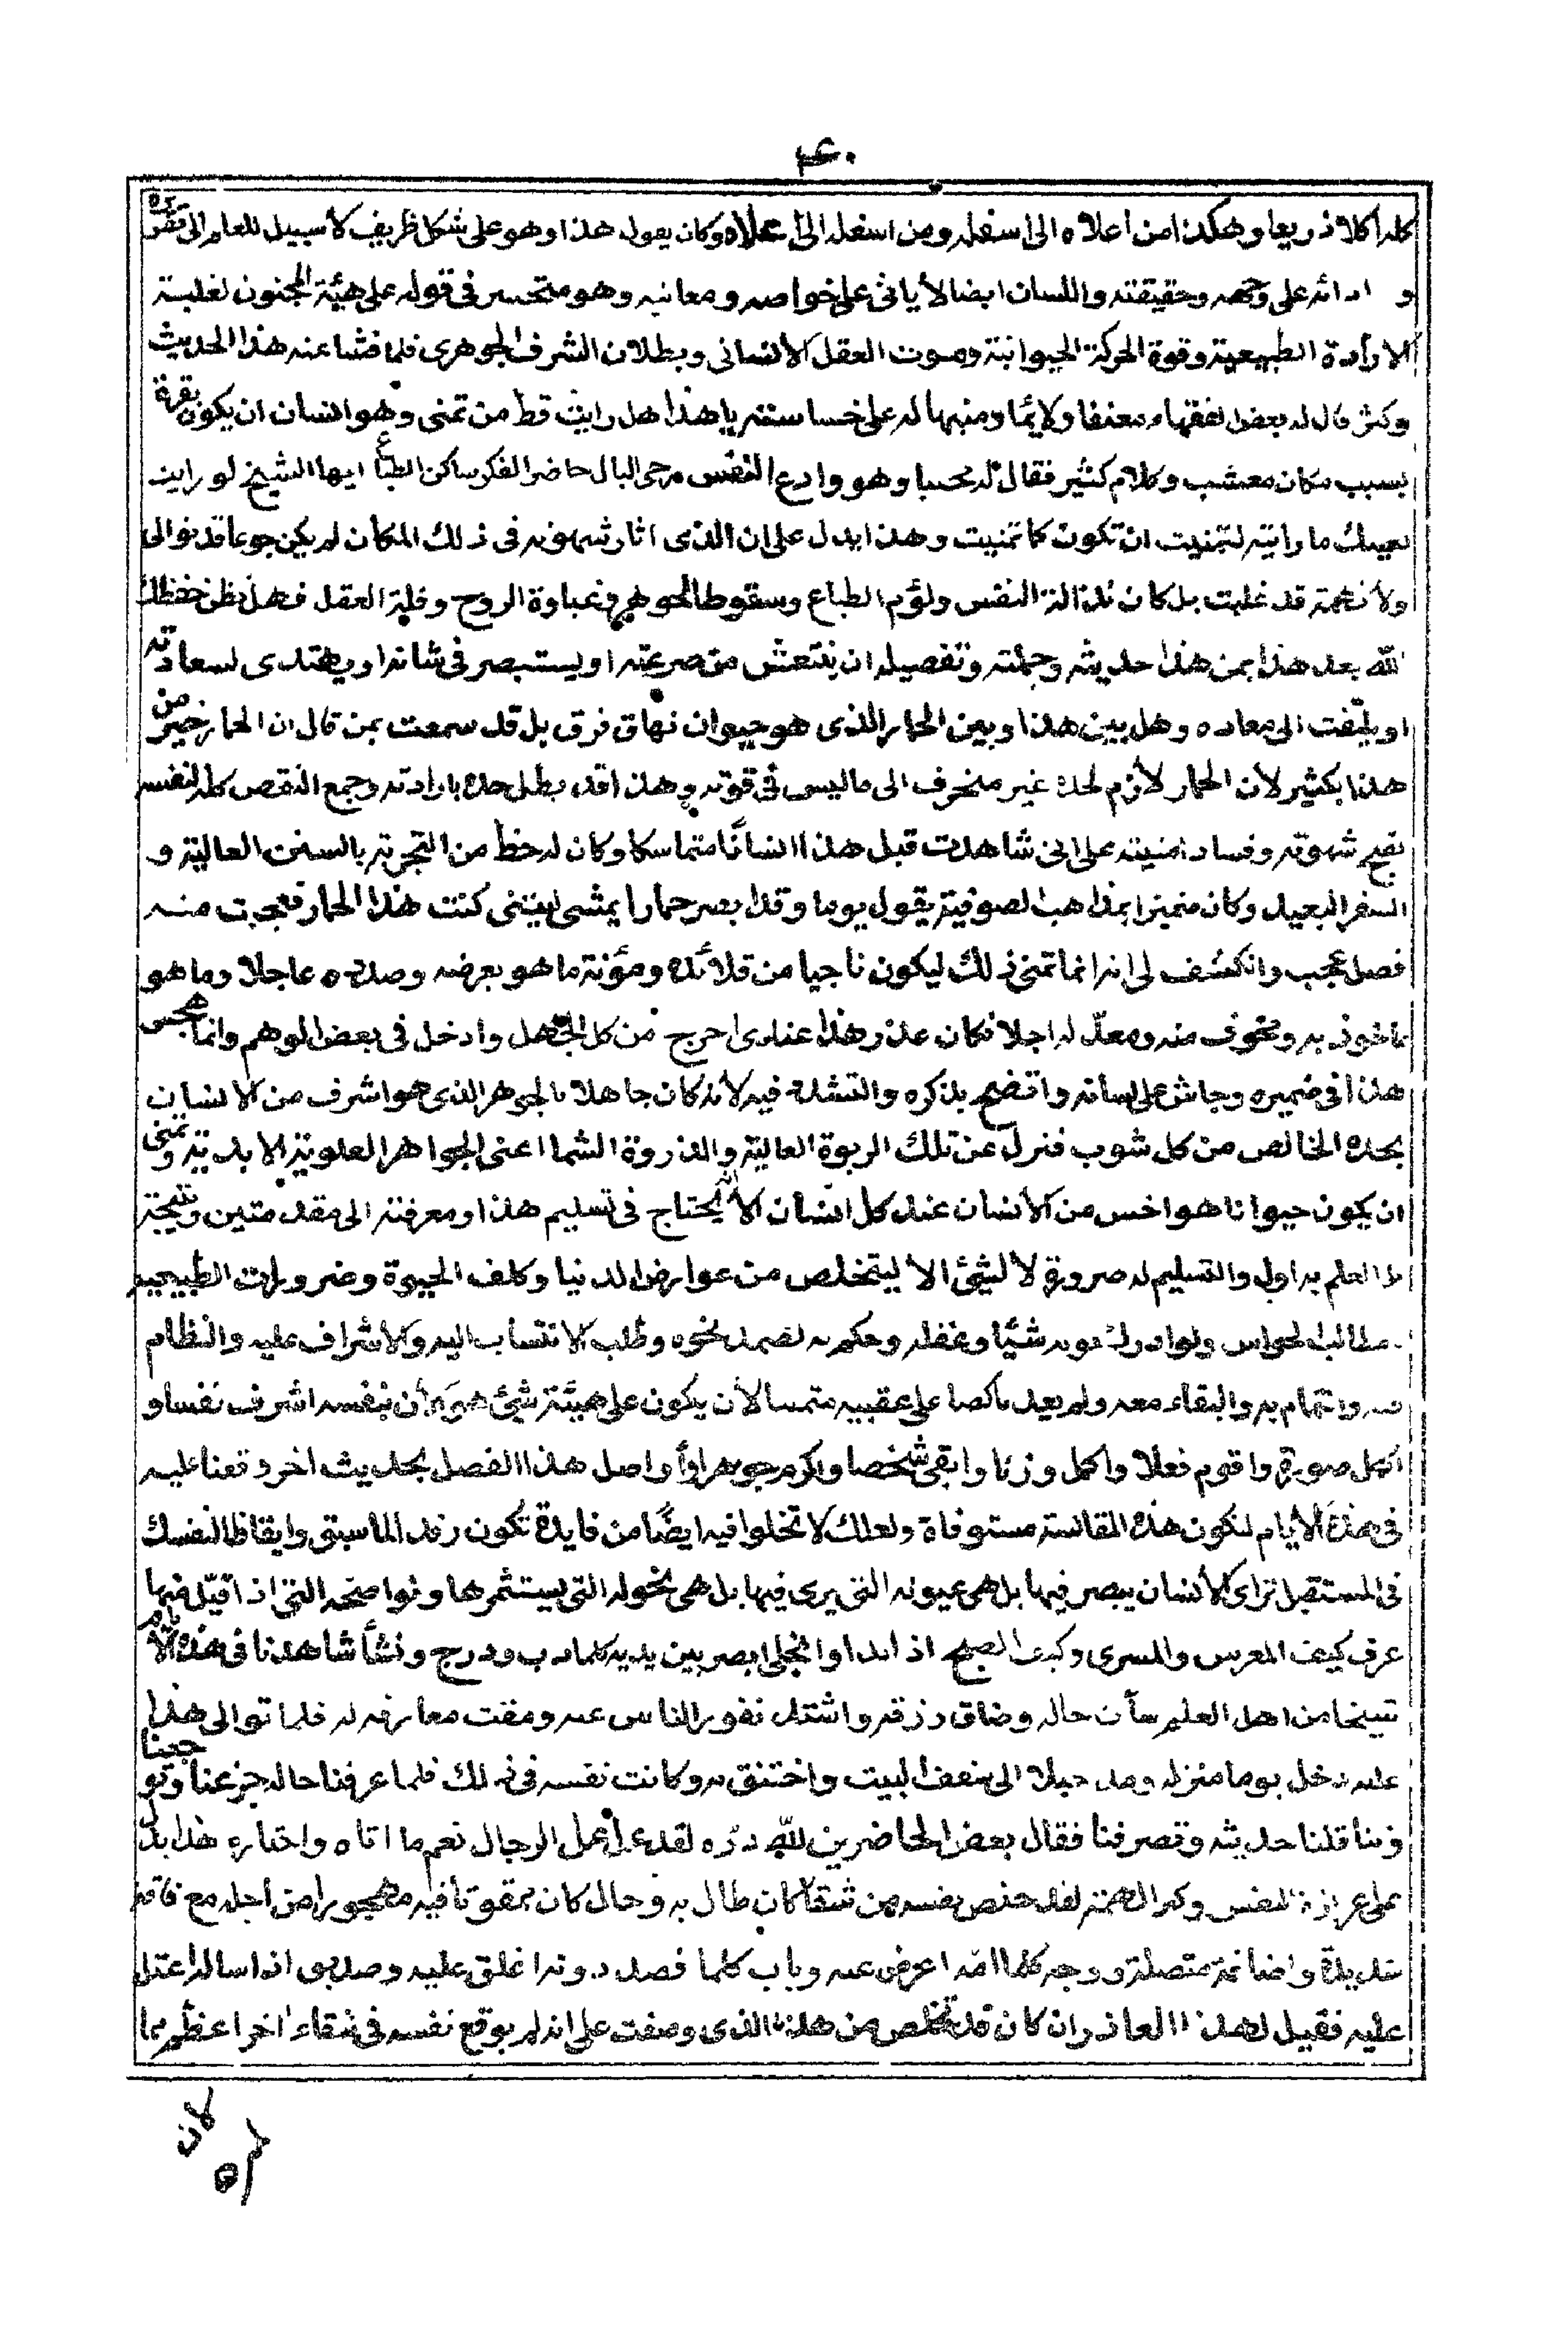 ۴۰
كله اكلا ذريعا وهكذا من اعلاه الى اسفله ومن اسفله الى اعلاه وكان يقول هذا وهو على شكل ظريف لاسبيل للعلم الى تقريره
و ادائه على وجهه وحقيقته واللسان ايضا لاياتى على خواصه ومعانيه وهو متحسر فى قوله على هيئة المجنون لغلبة
الارادة الطبيعية وقوة الحركة الحيوانية وموت العقل الانسانى وبطلان الشرف الجوهرى فلما فشا عنه هذا الحديث
وكثر قال له بعض الفقهاء معنفا ولايما ومنبها له على خساسته يا هذا هل رايت قط من تمنى وهو انسان ان يكون بقرة
بسبب مكان معشب وكلام كثير فقال له مجيبا وهو وادع النفس رخى البال حاضر الفكر ساكن الطباع ايها الشيخ لو رايت
بعينك ما رايته لتمنيت ان تكون كما تمنيت وهذا يدل على ان الذى اثار شهوته فى ذلك المكان لم يكن جوعا قد توالى
ولا نهمة قد غلبت بل كان نذالة النفس ولؤم الطباع وسقوط الجوهر وغباوة الروح وقلة العقل فهل تظن حفظك
الله بعد هذا بمن هذا حديثه وجملته وتفصيله ان ينتعش من صرعته او يستبصر فى شانه او يهتدى لسعادته
او يلتفت الى معاده وهل بين هذا وبين الحمار الذى هو حيوان نهاق فرق بل قد سمعت بمن قال ان الحمار خير من
هذا بكثير لان الحمار لازم لحده غير منحرف الى ماليس فى قوته وهذا قد بطل حده بارادته وجمع النقص كله لنفسه
بقبح شهوته وفساد امنيته على انى شاهدت قبل هذا انسانا متماسكا وكان له حظ من التجربة بالسنن العالية و
السفر البعيد وكان متميزا بمذاهب الصوفية يقول يوما وقد ابصر حمارا يمشى ليتنى كنت هذا الحمار فعجبت منه
فصل عجب وانكشف لى انه انما تمنى ذلك ليكون ناجيا من قلائده ومؤنة ما هو بعرضه وصدده عاجلا وما هو
ماخوذ به ومخوف منه ومعد له اجلا فكان عذر هذا عندى احرج من كل الجهل وادخل فى بعض الوهم وانما هجس
هذا فى ضميره وجاش على لسانه وافتضح بذكره والتشدق فيه لانه كان جاهلا بالجوهر الذى هو اشرف من الانسان
بحده الخالص من كل شوب فنزل عن تلك الربوة العالية والذروة الشما اعنى الجواهر العلوية الابدية وتمنى
ان يكون حيوانا هو اخس من الانسان عند كل انسان الا انه يحتاج فى تسليم هذا ومعرفته الى مقدمتين ونتيجة
بل العلم به اول والتسليم له ضرورة لا لشئ الا ليتخلص من عوارض الدنيا وكلف الحيوة وضرورات الطبيعة
ومطالب الحواس ولو ادرك شيئا وعقله وحكم به لصمد نحوه وطلب الانتساب اليه والاشراف عليه والنظام
به والتمام به والبقاء معه ولم يعد ناكصا على عقبيه متمنيا لان يكون على هيئة شئ هو بنفسه اشرف نفسا و
اكمل صورة واقوم فعلا واكمل وزنا وابقى شخصا واكرم جوهرا وانا واصل هذا الفصل بحديث اخر دفعنا عليه
فى هذه الايام لتكون هذه المقابسة مستوفاة ولعلك لا تخلوا فيه ايضا من فايدة تكون رفدا لما سبق وايقاظا لنفسك
فى المستقبل الانسان يبصر فيها بل هى عيونه التى يرى فيها بل هى نخوله التى يستثمرها ونواضحه التى اذا
عرف كيف المعرس والمسرى وكيف الصبح اذ ابدا وانجلى ابصر بين يديه كلما دب ودرج ونشأ شاهدنا فى هذه الايام
شيخا من اهل العلم ساءت حاله وضاق رزقه واشتد نفور الناس عنه ومقت معارفه له فلما توالى هذا
عليه دخل يوما منزله ومد حبلا الى سقف البيت واختنق به وكانت نفسه فى ذلك فلما عرفنا حاله جزعنا وتوجعنا
وتناقلنا حديثه وتصرفنا فقال بعض الحاضرين لله دره لقد عمل عمل الرجال نعم ما اتاه واختاره هذا يدل
على عزازة النفس وكبر الهمة لقد خلص نفسه من شقا كان طال به وحال كان ممقوتا فيه مهجورا من اجله مع فاقة
شديدة واضاقة متصلة ووجه كلما امه اعرض عنه وباب كلما قصد دونه اغلق عليه وصديق اذا ساله اعتل
عليه فقيل لهذا العاذر ان كان قد تخلص من هذا الذى وصفت على انه لم يوقع نفسه فى شقاء اخر اعظم مما
لان